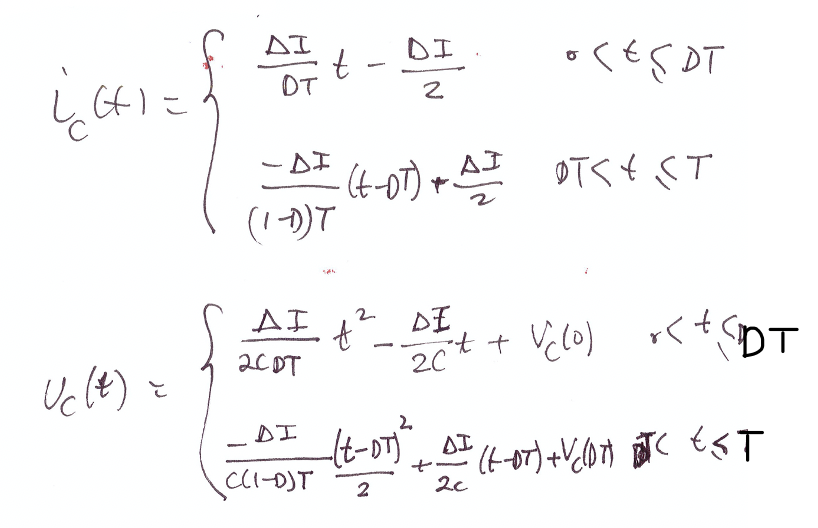 i_C(t) = { ΔI/DT t - ΔI/2 0 < t ≤ DT
-ΔI/(1-D)T (t-DT) + ΔI/2 DT < t ≤ T
υ_C(t) = { ΔI/2CDT t² - ΔI/2C t + V_C(0) 0 < t ≤ DT
-ΔI/C(1-D)T (t-DT)²/2 + ΔI/2C (t-DT) + V_C(DT) DT < t ≤ T